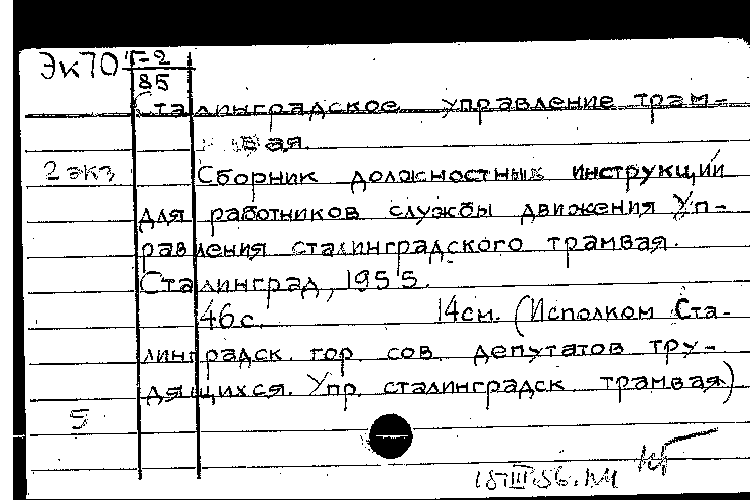 Эк70 Г-2
85
Сталинградское управление трам-
вая.
2 экз Сборник должностных инструкций
для работников службы движения Уп-
равления сталинградского трамвая.
Сталинград, 1955.
46с. 14см. (Исполком Ста-
линградск. гор. сов. депутатов тру-
дящихся. Упр. сталинградск. трамвая)
5
15 III 56.